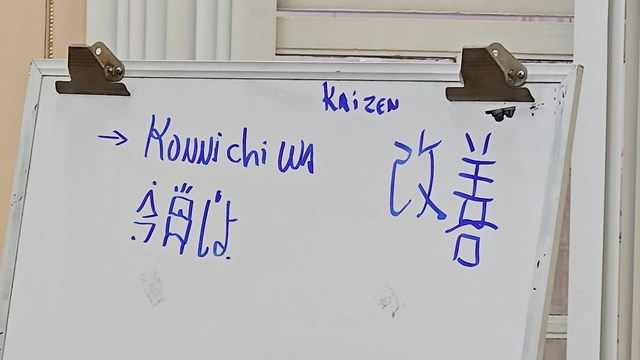 KAIZEN
→ KONNichi WA
今日は
改善